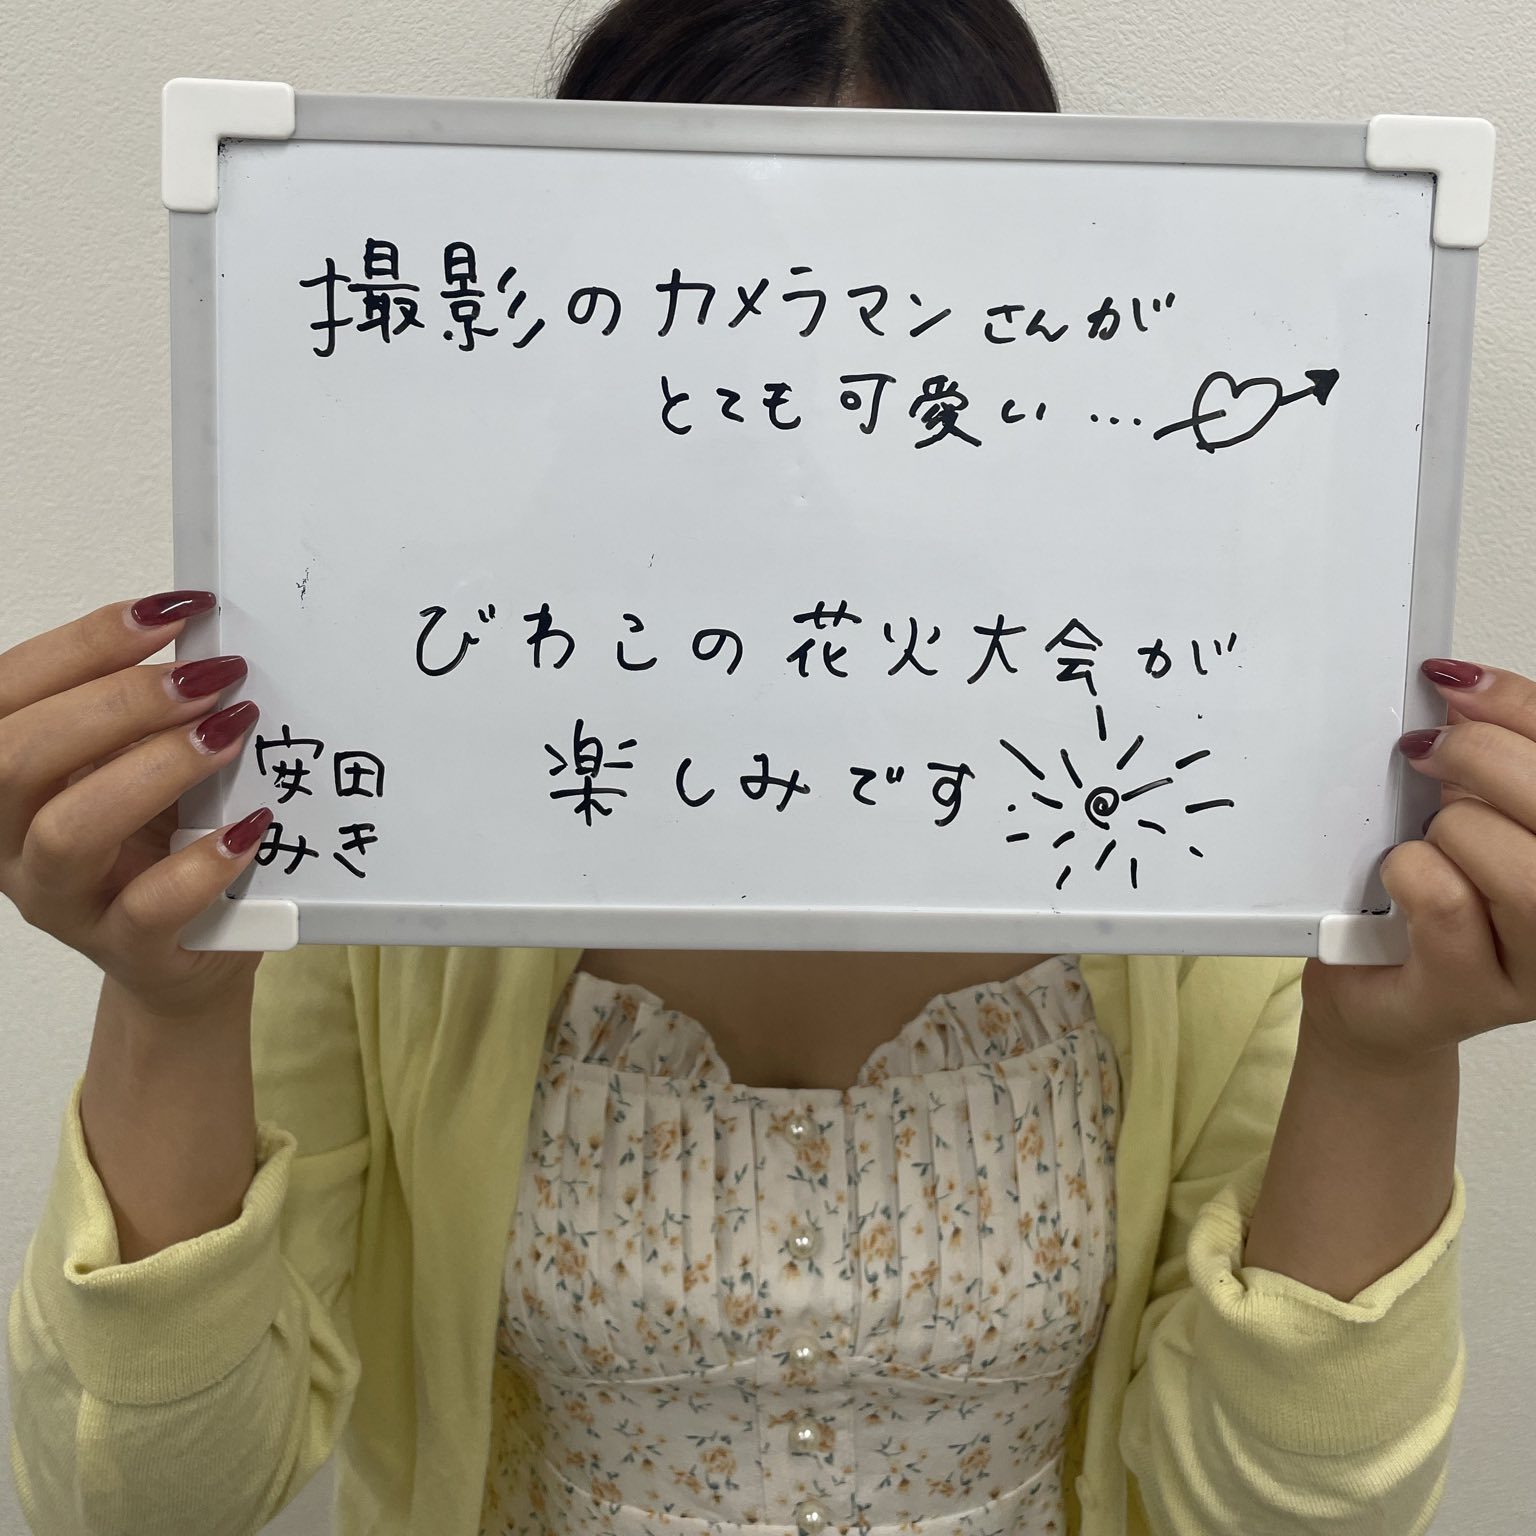 撮影のカメラマンさんが
とても可愛い…
びわこの花火大会が
楽しみです
安田
みき